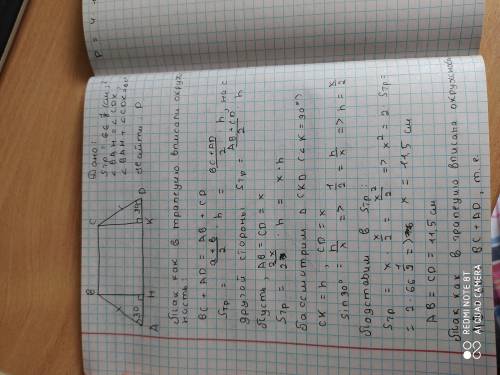 Дано:
Sтр = 66 1/8 (см,
< BAH = < CDK,
< BAH + < CDK = 60°
Найти: P
B
C
x
x
30
30
A
H
K
D
Так как в трапецию вписали окруж
ность:
BC + AD = AB + CD
Sтр = (a + b)/2 · h = (BC + AD)/2 · h, но с
другой стороны: Sтр = (AB + CD)/2 · h
Пусть AB = CD = x
Sтр = 2x/2 · h = x · h
Рассмотрим Δ CKD (< K = 90°)
CK = h, CD = x
Sin 30° = h/x => 1/2 = h/x => h = x/2
Подставим в Sтр:
Sтр = x · x/2 = x²/2 => x² = 2 Sтр =
= 2 · 66 1/8 => x = 11,5 см
AB = CD = 11,5 см
Так как в трапецию вписана окружнос
BC + AD, т.е.
P = 4
REDMI NOTE 8T
AI QUAD CAMERA